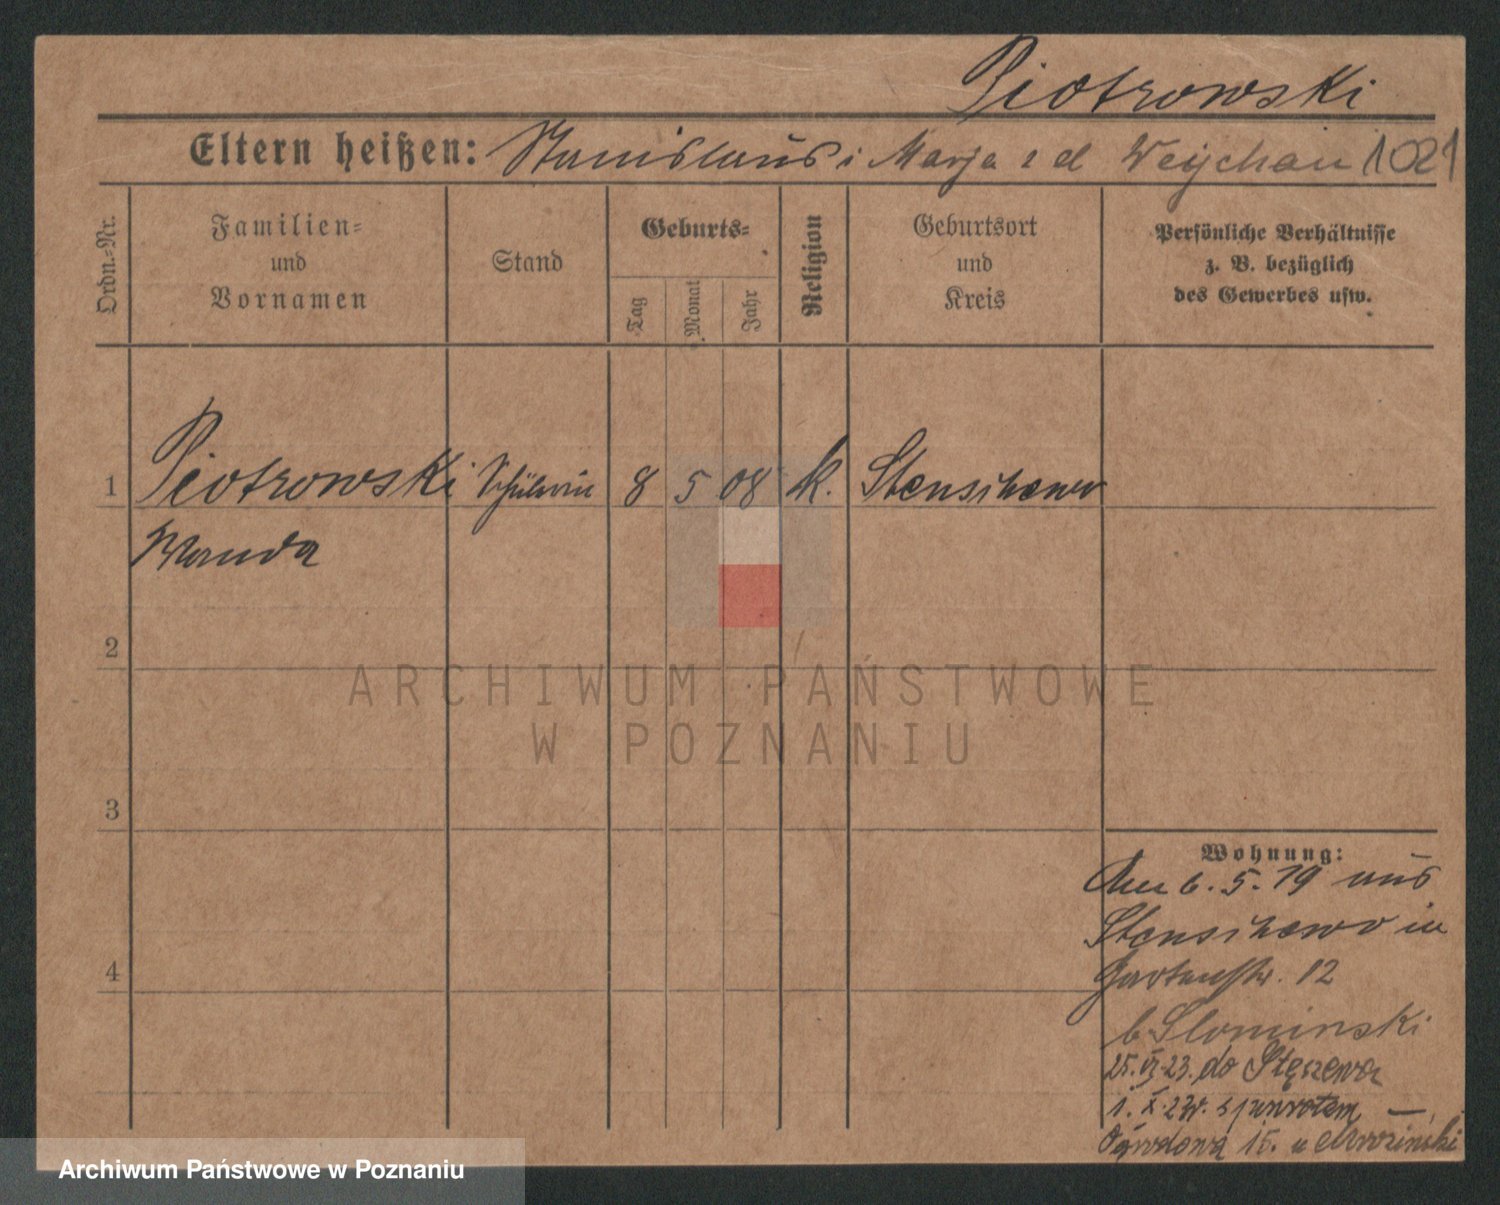 Piotrowski
Eltern heißen: Stanislaus i Marja z d Weychan 1021
Ordn.-Nr.
Familien-
und
Vornamen
Stand
Geburts-
Tag
Monat
Jahr
Religion
Geburtsort
und
Kreis
Persönliche Verhältnisse
z. B. bezüglich
des Gewerbes usw.
1 Piotrowski Schülerin 8 5 08 k. Stenschewo
Wanda
2
3
4
ARCHIWUM PAŃSTWOWE
W POZNANIU
Wohnung:
Am 6.5.19 aus
Stenschewo in
Gartenstr. 12
b. Slominski
25.VI.23. do Stęszewa
1. X. 23r. z powrotem —
Ogrodowa 15. u
Archiwum Państwowe w Poznaniu